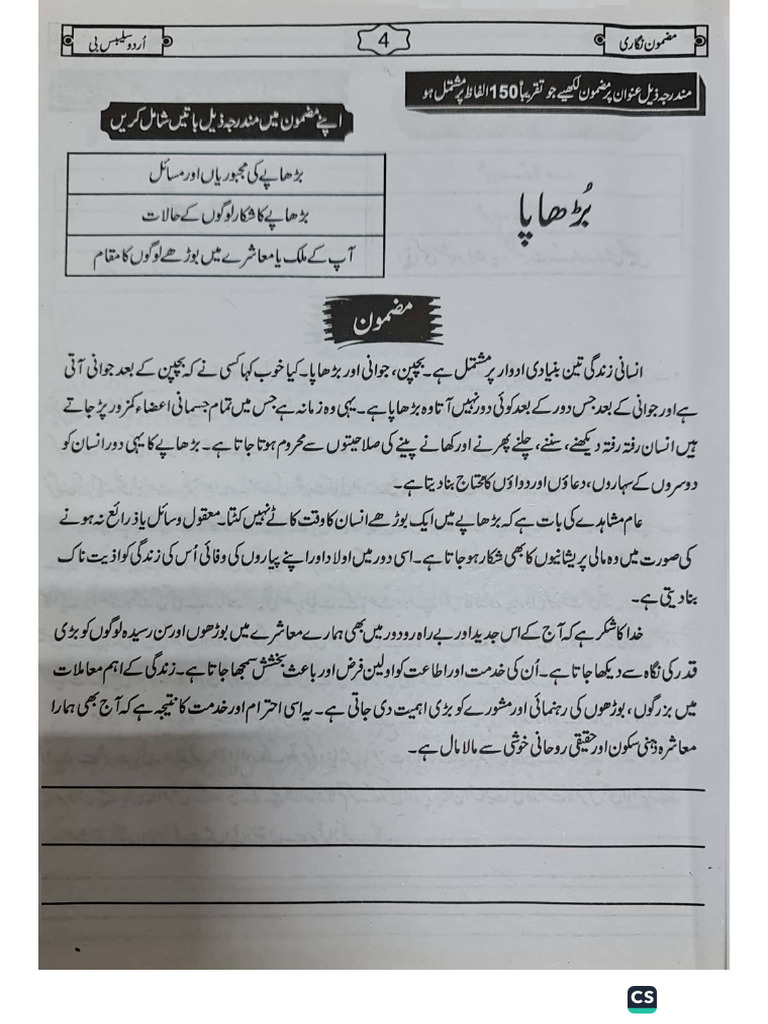 مضمون نگاری
4
اُردو سلیبس بی
مندرجہ ذیل عنوان پر مضمون لکھیے جو تقریباً 150 الفاظ پر مشتمل ہو
اپنے مضمون میں مندرجہ ذیل باتیں شامل کریں
بُڑھاپا
بڑھاپے کی مجبوریاں اور مسائل
بڑھاپے کا شکار لوگوں کے حالات
آپ کے ملک یا معاشرے میں بوڑھے لوگوں کا مقام
مضمون
انسانی زندگی تین بنیادی ادوار پر مشتمل ہے۔ بچپن، جوانی اور بڑھاپا۔ کیا خوب کہا کسی نے کہ بچپن کے بعد جوانی آتی
ہے اور جوانی کے بعد جس دور کے بعد کوئی دور نہیں آتا وہ بڑھاپا ہے۔ یہی وہ زمانہ ہے جس میں تمام جسمانی اعضاء کمزور پڑ جاتے
ہیں انسان رفتہ رفتہ دیکھنے، سننے، چلنے پھرنے اور کھانے پینے کی صلاحیتوں سے محروم ہوتا جاتا ہے۔ بڑھاپے کا یہی دور انسان کو
دوسروں کے سہاروں، دعاؤں اور دواؤں کا محتاج بنا دیتا ہے۔
عام مشاہدے کی بات ہے کہ بڑھاپے میں ایک بوڑھے انسان کا وقت کاٹے نہیں کٹتا۔ معقول وسائل یا ذرائع نہ ہونے
کی صورت میں وہ مالی پریشانیوں کا بھی شکار ہو جاتا ہے۔ اسی دور میں اولاد اور اپنے پیاروں کی وفائی اُس کی زندگی کو اذیت ناک
بنا دیتی ہے۔
خدا کا شکر ہے کہ آج کے اس جدید اور بے راہ رو دور میں بھی ہمارے معاشرے میں بوڑھوں اور سن رسیدہ لوگوں کو بڑی
قدر کی نگاہ سے دیکھا جاتا ہے۔ اُن کی خدمت اور اطاعت کو اولین فرض اور باعث بخشش سمجھا جاتا ہے۔ زندگی کے اہم معاملات
میں بزرگوں، بوڑھوں کی رہنمائی اور مشورے کو بڑی اہمیت دی جاتی ہے۔ یہ اسی احترام اور خدمت کا نتیجہ ہے کہ آج بھی ہمارا
معاشرہ ذہنی سکون اور حقیقی روحانی خوشی سے مالا مال ہے۔
CS